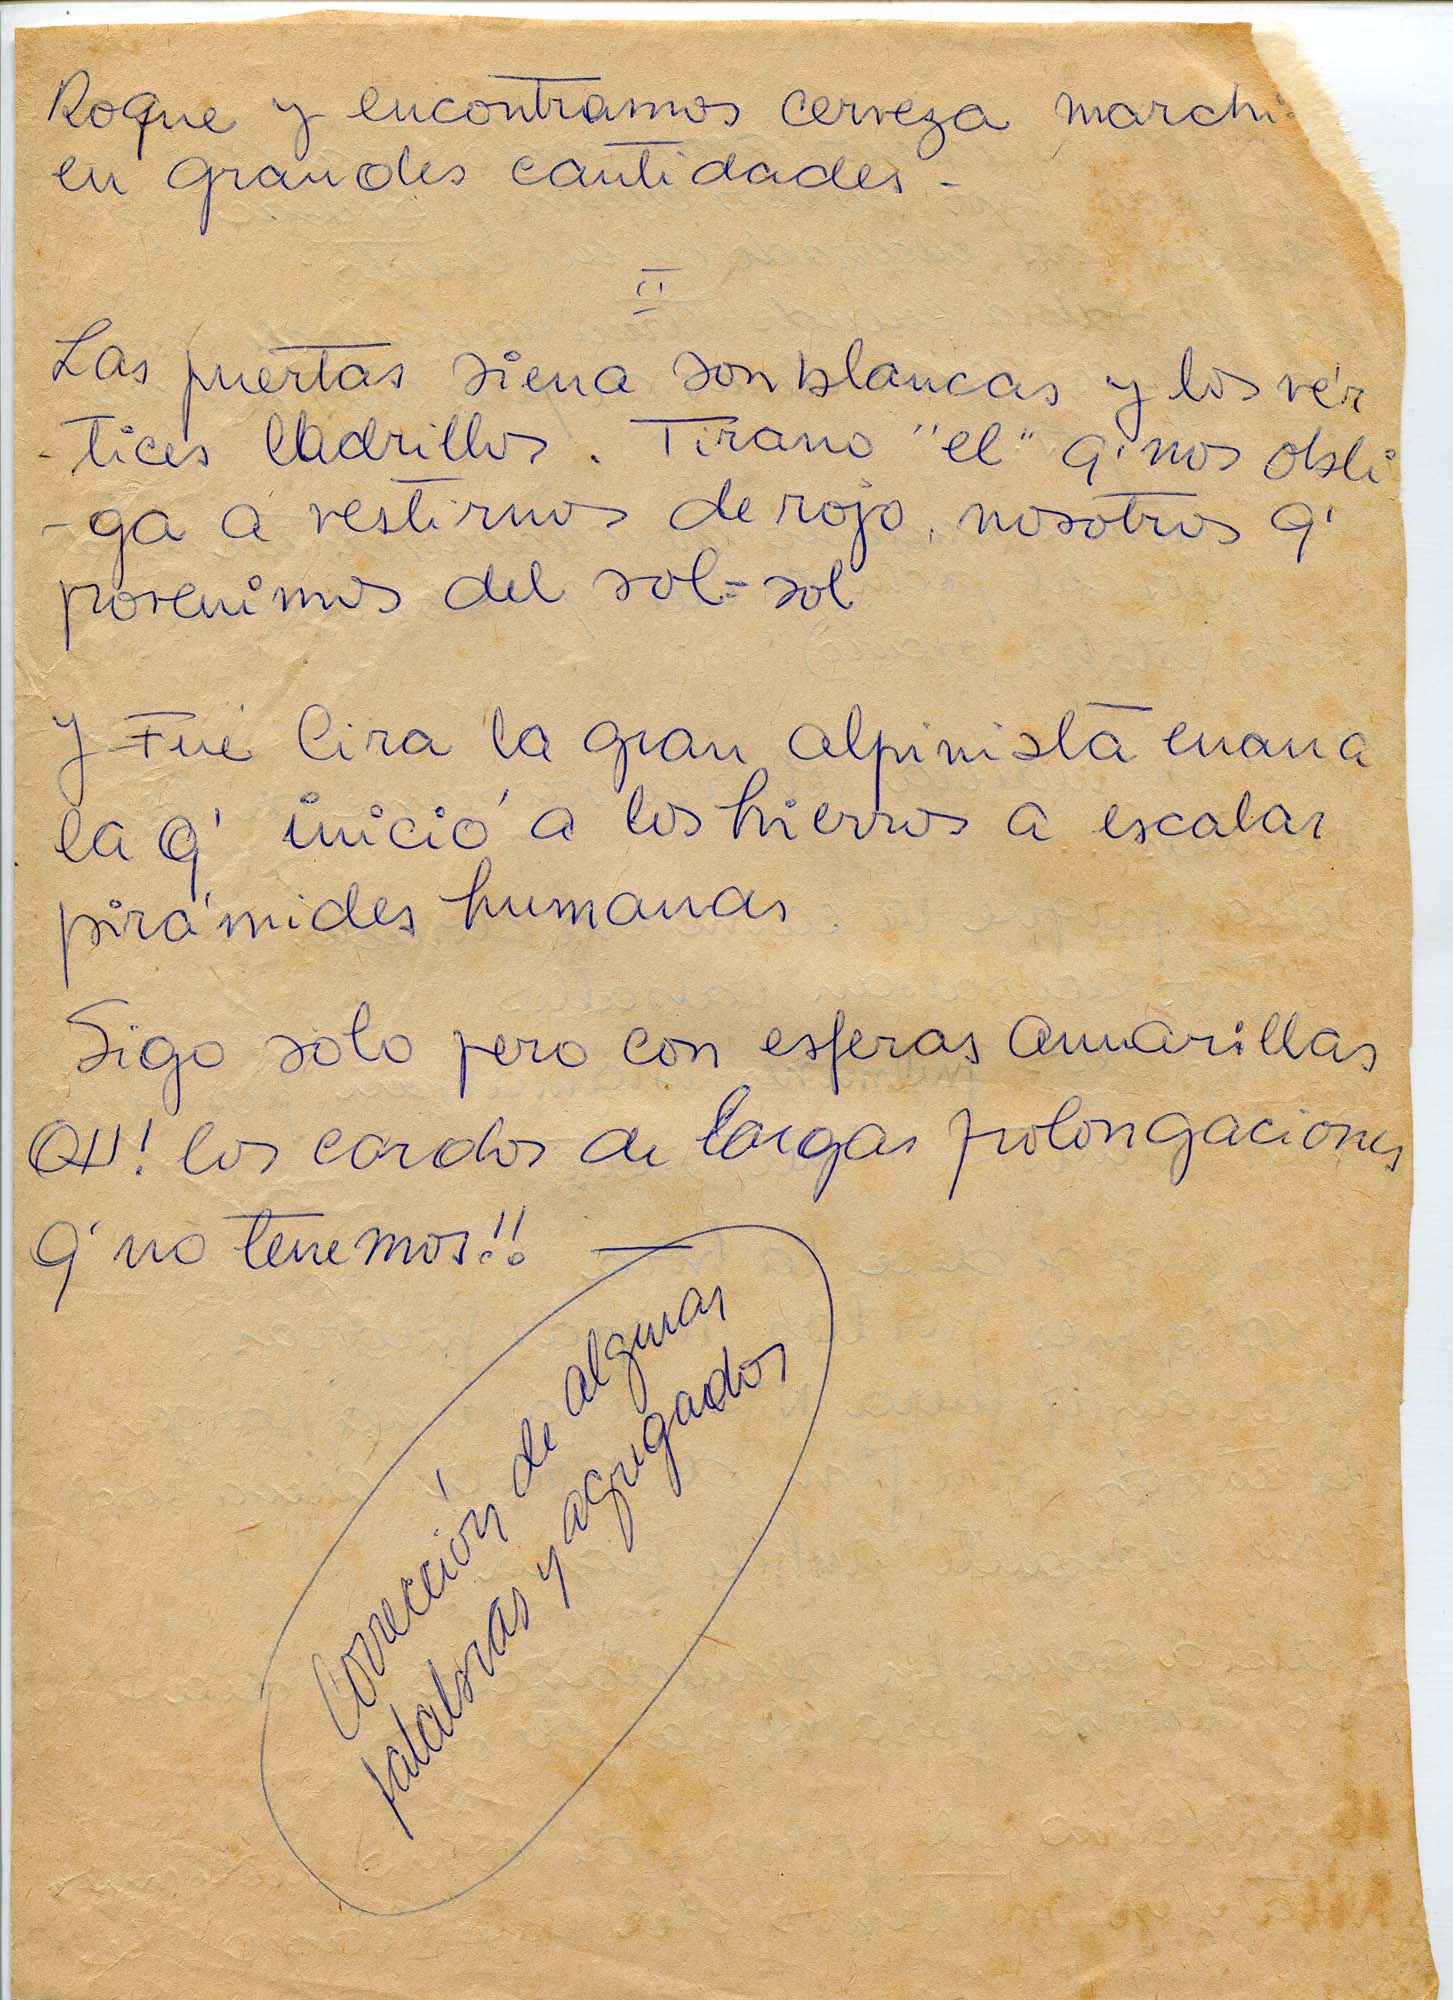 Roque y encontramos cerveza marchi
en grandes cantidades -
II
Las puertas siena son blancas y los vér
-tices ladrillos. Tirano "el" q' nos obli
-ga a vestirnos de rojo, nosotros q'
provenimos del sol-sol
y Fué Lira la gran alpinista enana
la q' inició a los hierros a escalar
pirámides humanas.
Sigo solo pero con esferas amarillas
OH! los cardos de largas prolongaciones
q' no tenemos!! —
Corrección de algunas
palabras y agregados